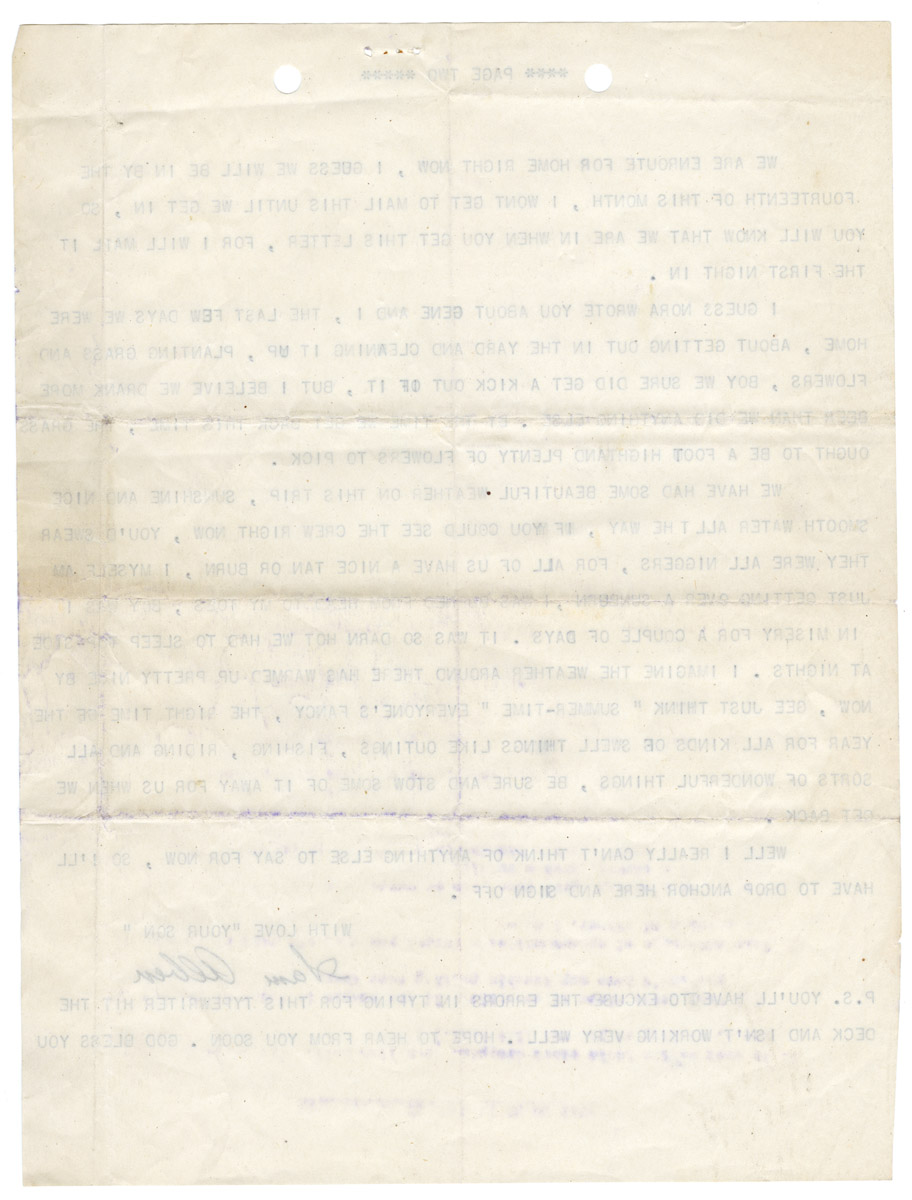 **** PAGE TWO *****
WE ARE ENROUTE FOR HOME RIGHT NOW , I GUESS WE WILL BE IN BY THE
FOURTEENTH OF THIS MONTH , I WONT GET TO MAIL THIS UNTIL WE GET IN , SO
YOU WILL KNOW THAT WE ARE IN WHEN YOU GET THIS LETTER , FOR I WILL MAIL IT
THE FIRST NIGHT IN .
I GUESS NORA WROTE YOU ABOUT GENE AND I , THE LAST FEW DAYS WE WERE
HOME , ABOUT GETTING OUT IN THE YARD AND CLEANING IT UP , PLANTING GRASS AND
FLOWERS , BOY WE SURE DID GET A KICK OUT OF IT , BUT I BELEIVE WE DRANK MORE
BEER THAN WE DID ANYTHING ELSE . BY THE TIME WE GET BACK THIS TIME , THE GRASS
OUGHT TO BE A FOOT HIGH AND PLENTY OF FLOWERS TO PICK .
WE HAVE HAD SOME BEAUTIFUL WEATHER ON THIS TRIP , SUNSHINE AND NICE
SMOOTH WATER ALL THE WAY , IF YOU COULD SEE THE CREW RIGHT NOW , YOU'D SWEAR
THEY WERE ALL NIGGERS , FOR ALL OF US HAVE A NICE TAN OR BURN , I MYSELF AM
JUST GETTING OVER A SUNBURN , I WAS BURNED FROM HEAD TO MY TOES , BOY WAS I
IN MISERY FOR A COUPLE OF DAYS . IT WAS SO DARN HOT WE HAD TO SLEEP TOPSIDE
AT NIGHTS . I IMAGINE THE WEATHER AROUND THERE HAS WARMED UP PRETTY NICE BY
NOW , GEE JUST THINK " SUMMER-TIME " EVERYONE'S FANCY , THE RIGHT TIME OF THE
YEAR FOR ALL KINDS OF SWELL THINGS LIKE OUTINGS , FISHING , RIDING AND ALL
SORTS OF WONDERFUL THINGS , BE SURE AND STOW SOME OF IT AWAY FOR US WHEN WE
GET BACK .
WELL I REALLY CAN'T THINK OF ANYTHING ELSE TO SAY FOR NOW , SO I'LL
HAVE TO DROP ANCHOR HERE AND SIGN OFF .
WITH LOVE "YOUR SON "
Sam Alben
P.S. YOU'LL HAVE TO EXCUSE THE ERRORS IN TYPING FOR THIS TYPEWRITER HIT THE
DECK AND ISN'T WORKING VERY WELL . HOPE TO HEAR FROM YOU SOON . GOD BLESS YOU